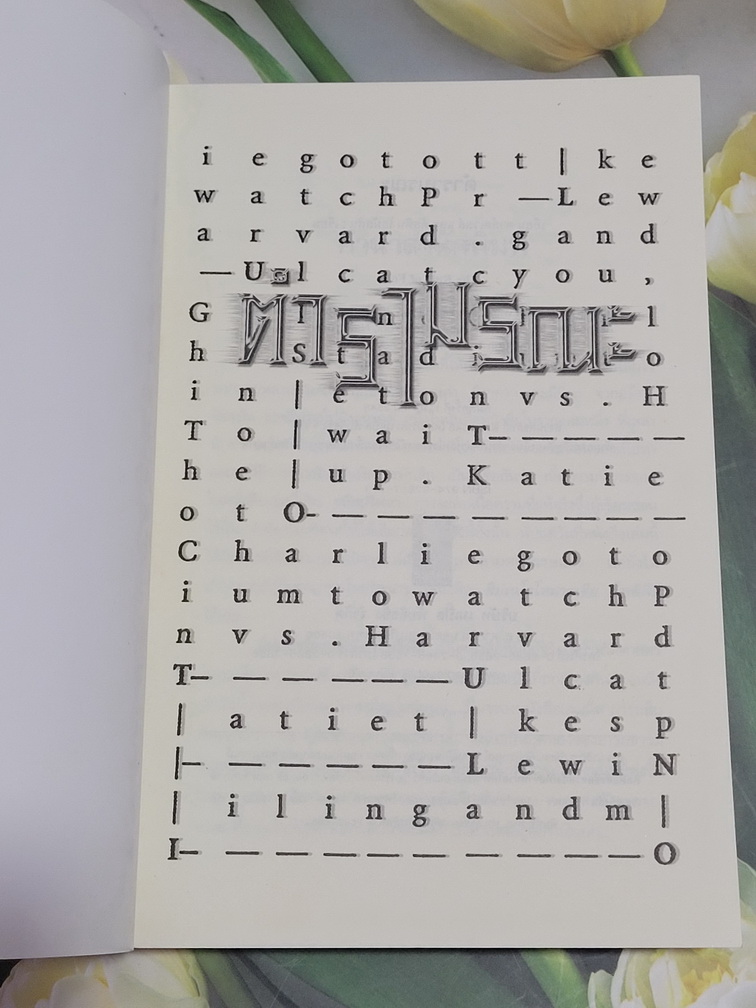 i e g o t o t t | k e
w a t c h P r — L e w
a r v a r d . g a n d
— U l c a t c y o u ,
ตารามรณะ
i n | e t o n v s . H
T o | w a i T — — — — —
h e | u p . K a t i e
o t O — — — — — — — —
C h a r l i e g o t o
i u m t o w a t c h P
n v s . H a r v a r d
T — — — — — — U l c a t
| a t i e t | k e s p
| — — — — — — L e w i N
| i l i n g a n d m |
I — — — — — — — — — — O